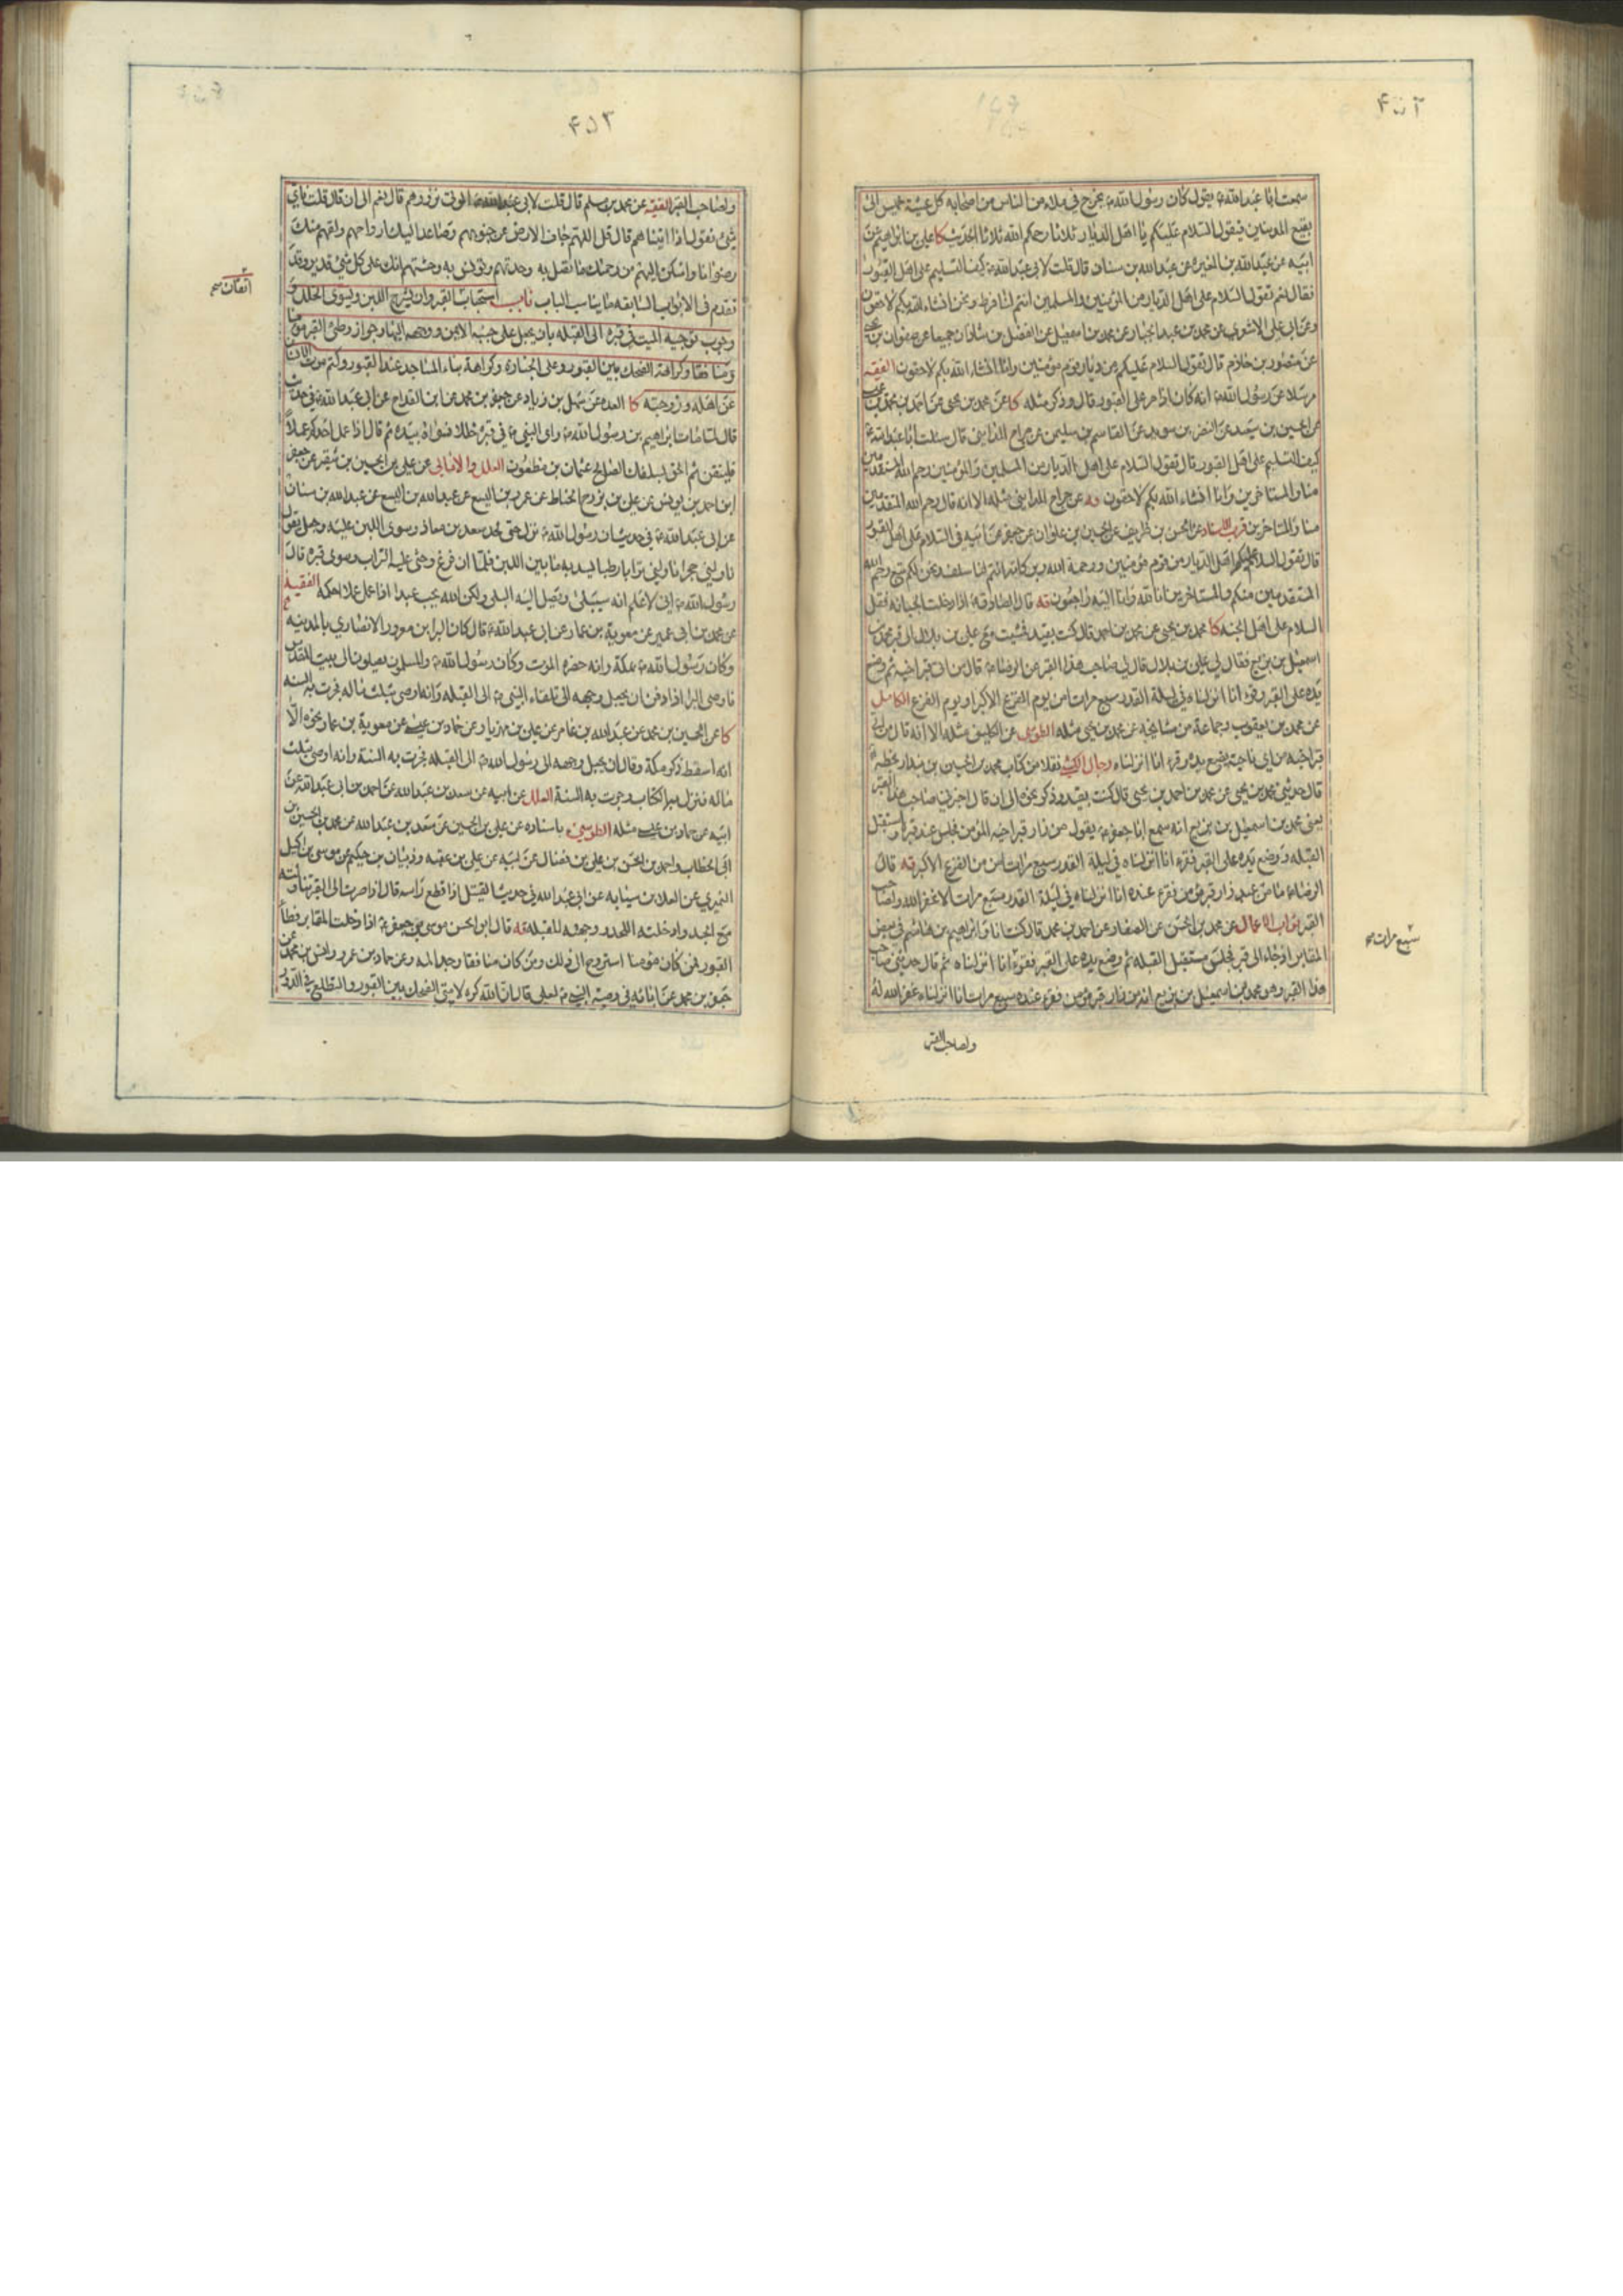 ۴۵۲
سمعت ابا عبدالله ع يقول كان رسول الله ص يخرج في ملاء من الناس من اصحابه كل عشية خميس الى
بقيع المدنيين فيقول السلام عليكم يا اهل الديار ثلاثا رحمكم الله ثلاثا الحديث كا علي بن ابراهيم عن
ابيه عن عبدالله بن المغيره عن عبدالله بن سنان قال قلت لابي عبدالله ع كيف التسليم على اهل القبور
فقال نعم تقول السلام على اهل الديار من المؤمنين والمسلمين انتم لنا فرط ونحن انشاء الله بكم لاحقون
وعن ابي علي الاشعري عن محمد بن عبد الجبار وعن محمد بن اسمعيل عن الفضل بن شاذان جميعا عن صفوان بن يحيى
عن منصور بن حازم قال تقول السلام عليكم من ديار قوم مؤمنين وانا انشاء الله بكم لاحقون الفقيه
مرسلا عن رسول الله ص انه كان اذا مر على القبور قال وذكر مثله كا عن محمد بن يحيى عن احمد بن محمد بن
عن الحسين بن سعيد عن النضر بن سويد عن القاسم بن سليمن عن جراح المدايني قال سئلت ابا عبدالله ع
كيف التسليم على اهل القبور قال تقول السلام على اهل الديار من المسلمين والمؤمنين رحم الله المتقدمين
منا والمستاخرين وانا انشاء الله بكم لاحقون يه عن جراح المدايني مثله الا انه قال رحم الله المتقدمين
منا والمتاخرين قرب الاسناد عن الحسن بن ظريف عن الحسين بن علوان عن جعفر عن ابيه في السلام على اهل القبور
قال تقول السلام عليكم اهل الديار من قوم مؤمنين ورحمة الله وبركاته انتم لنا سلف ونحن لكم تبع رحم الله
المتقدمين منكم والمستاخرين انا لله وانا اليه راجعون قه قال الصادق ع اذا دخلت الجبانه فقل
السلام على اهل الجنه كا محمد بن يحيى عن محمد بن احمد قال كنت بفيد فمشيت مع علي بن بلال الى قبر محمد بن
اسمعيل بن بزيع فقال لي علي بن بلال قال لي صاحب هذا القبر عن الرضا ع قال من اتى قبر اخيه ثم وضع
يده على القبر وقرء انا انزلناه في ليلة القدر سبع مرات امن يوم الفزع الاكبر او يوم الفزع الكامل
عن محمد بن يعقوب وجماعة من مشايخه عن محمد بن يحيى مثله الطوسي عن الكليني مثله الا انه قال من اتى
قبر اخيه من اي ناحية يضع يده وقرء انا انزلناه رجال الكشي نقلا من كتاب محمد بن الحسين بن بندار بخطه
قال حدثني محمد بن يحيى عن محمد بن احمد بن يحيى قال كنت بفيد وذكر نحوه الى ان قال اخبرني صاحب هذا القبر
يعني محمد بن اسمعيل بن بزيع انه سمع ابا جعفر ع يقول من زار قبر اخيه المؤمن فجلس عند قبره واستقبل
القبله ووضع يده على القبر فقرء انا انزلناه في ليلة القدر سبع مرات امن من الفزع الاكبر قه قال
الرضا ع ما من عبد زار قبر مؤمن فقرء عنده انا انزلناه في ليلة القدر سبع مرات الا غفر الله له ولصاحب
القبر ثواب الاعمال عن محمد بن الحسن عن الصفار عن احمد بن محمد قال كنت انا وابراهيم بن هاشم في بعض
المقابر اذ جاء الى قبر فجلس مستقبل القبله ثم وضع يده على القبر فقرء انا انزلناه ثم قال حدثني صاحب
هذا القبر وهو محمد بن اسمعيل بن بزيع انه من زار قبر مؤمن فقرء عنده سبع مرات انا انزلناه غفر الله له
سبع مرات
ولصاحب القبر
۴۵۳
ولصاحب القبر الفقيه عن محمد بن مسلم قال قلت لابي عبدالله ع الموتى نزورهم قال نعم الى ان قال قلت فاي
شئ نقول اذا اتيناهم قال قل اللهم جاف الارض عن جنوبهم وصاعد اليك ارواحهم ولقهم منك
رضوانا واسكن اليهم من رحمتك ما تصل به وحدتهم وتونس به وحشتهم انك على كل شئ قدير وقد
تقدم في الابواب السابقه ما يناسب الباب باب استحباب القبر وان يشرج اللبن ويسوى الخلل و
وجوب توجيه الميت في قبره الى القبله بان يجعل على جنبه الايمن ووجهه اليها وجواز وطئ القبر مؤمنا
ومنافقا وكراهة الضحك بين القبور وعلى الجنازه وكراهة بناء المساجد عند القبور وكتم موت الانسان
عن اهله وزوجته كا العده عن سهل بن زياد عن جعفر بن محمد عن ابن القداح عن ابي عبدالله ع في حديث
قال لما مات ابراهيم بن رسول الله ص راى النبي ص في قبره خللا فسواه بيده ثم قال اذا عمل احدكم عملا
فليتقن ثم الحق بسلفك الصالح عثمان بن مظعون العلل والامالي عن علي بن الحسين بن شقير عن جعفر
ابن احمد بن يوسف عن علي بن بزرج الحناط عن عمرو بن اليسع عن عبدالله بن اليسع عن عبدالله بن سنان
عن ابي عبدالله ع في حديث ان رسول الله ص نزل حتى لحد سعد بن معاذ وسوى اللبن عليه وجعل يقول
ناولني حجرا ناولني ترابا رطبا يسد به ما بين اللبن فلما ان فرغ وحثى عليه التراب وسوى قبره قال
رسول الله ص اني لاعلم انه سيبلى ويصل اليه البلى ولكن الله يحب عبدا اذا عمل عملا احكمه الفقيه
عن محمد بن ابي عمير عن معوية بن عمار عن ابي عبدالله ع قال كان البرا بن معرور الانصاري بالمدينه
وكان رسول الله ص بمكة وانه حضره الموت وكان رسول الله ص والمسلمون يصلون الى بيت المقدس
فاوصى البرا اذا دفن ان يجعل وجهه الى تلقاء النبي ص الى القبله وانه اوصى بثلث ماله فجرت به السنه
كا عن الحسين بن محمد عن عبدالله بن عامر عن علي بن مهزيار عن حماد بن عيسى عن معوية بن عمار نحوه الا
انه اسقط ذكر مكة وقال ان يجعل وجهه الى رسول الله ص الى القبله فجرت به السنة وانه اوصى بثلث
ماله فنزل به الكتاب وجرت به السنة العلل عن ابيه عن سعد بن عبدالله عن احمد بن ابي عبدالله عن
ابيه عن حماد بن عيسى مثله الطوسي باسناده عن علي بن الحسين عن سعد بن عبدالله عن محمد بن الحسين بن
ابي الخطاب واحمد بن الحسن بن علي بن فضال عن ابيه عن علي بن عقبه وذبيان بن حكيم عن موسى بن اكيل
النميري عن العلا بن سيابه عن ابي عبد الله في حديث القتيل اذا قطع راسه قال اذا صرت الى القبر تناولته
مع الجسد وادخلته اللحد ووجهته للقبله قه قال ابو الحسن موسى بن جعفر ع اذا دخلت المقابر فطأ
القبور فمن كان مؤمنا استروح الى ذلك ومن كان منافقا وجد المه وعن حماد بن عمرو وانس بن محمد عن
جعفر بن محمد عن ابائه في وصية النبي ص لعلي قال ان الله كره لامتي الضحك بين القبور والتطلع في الدور
اتقان